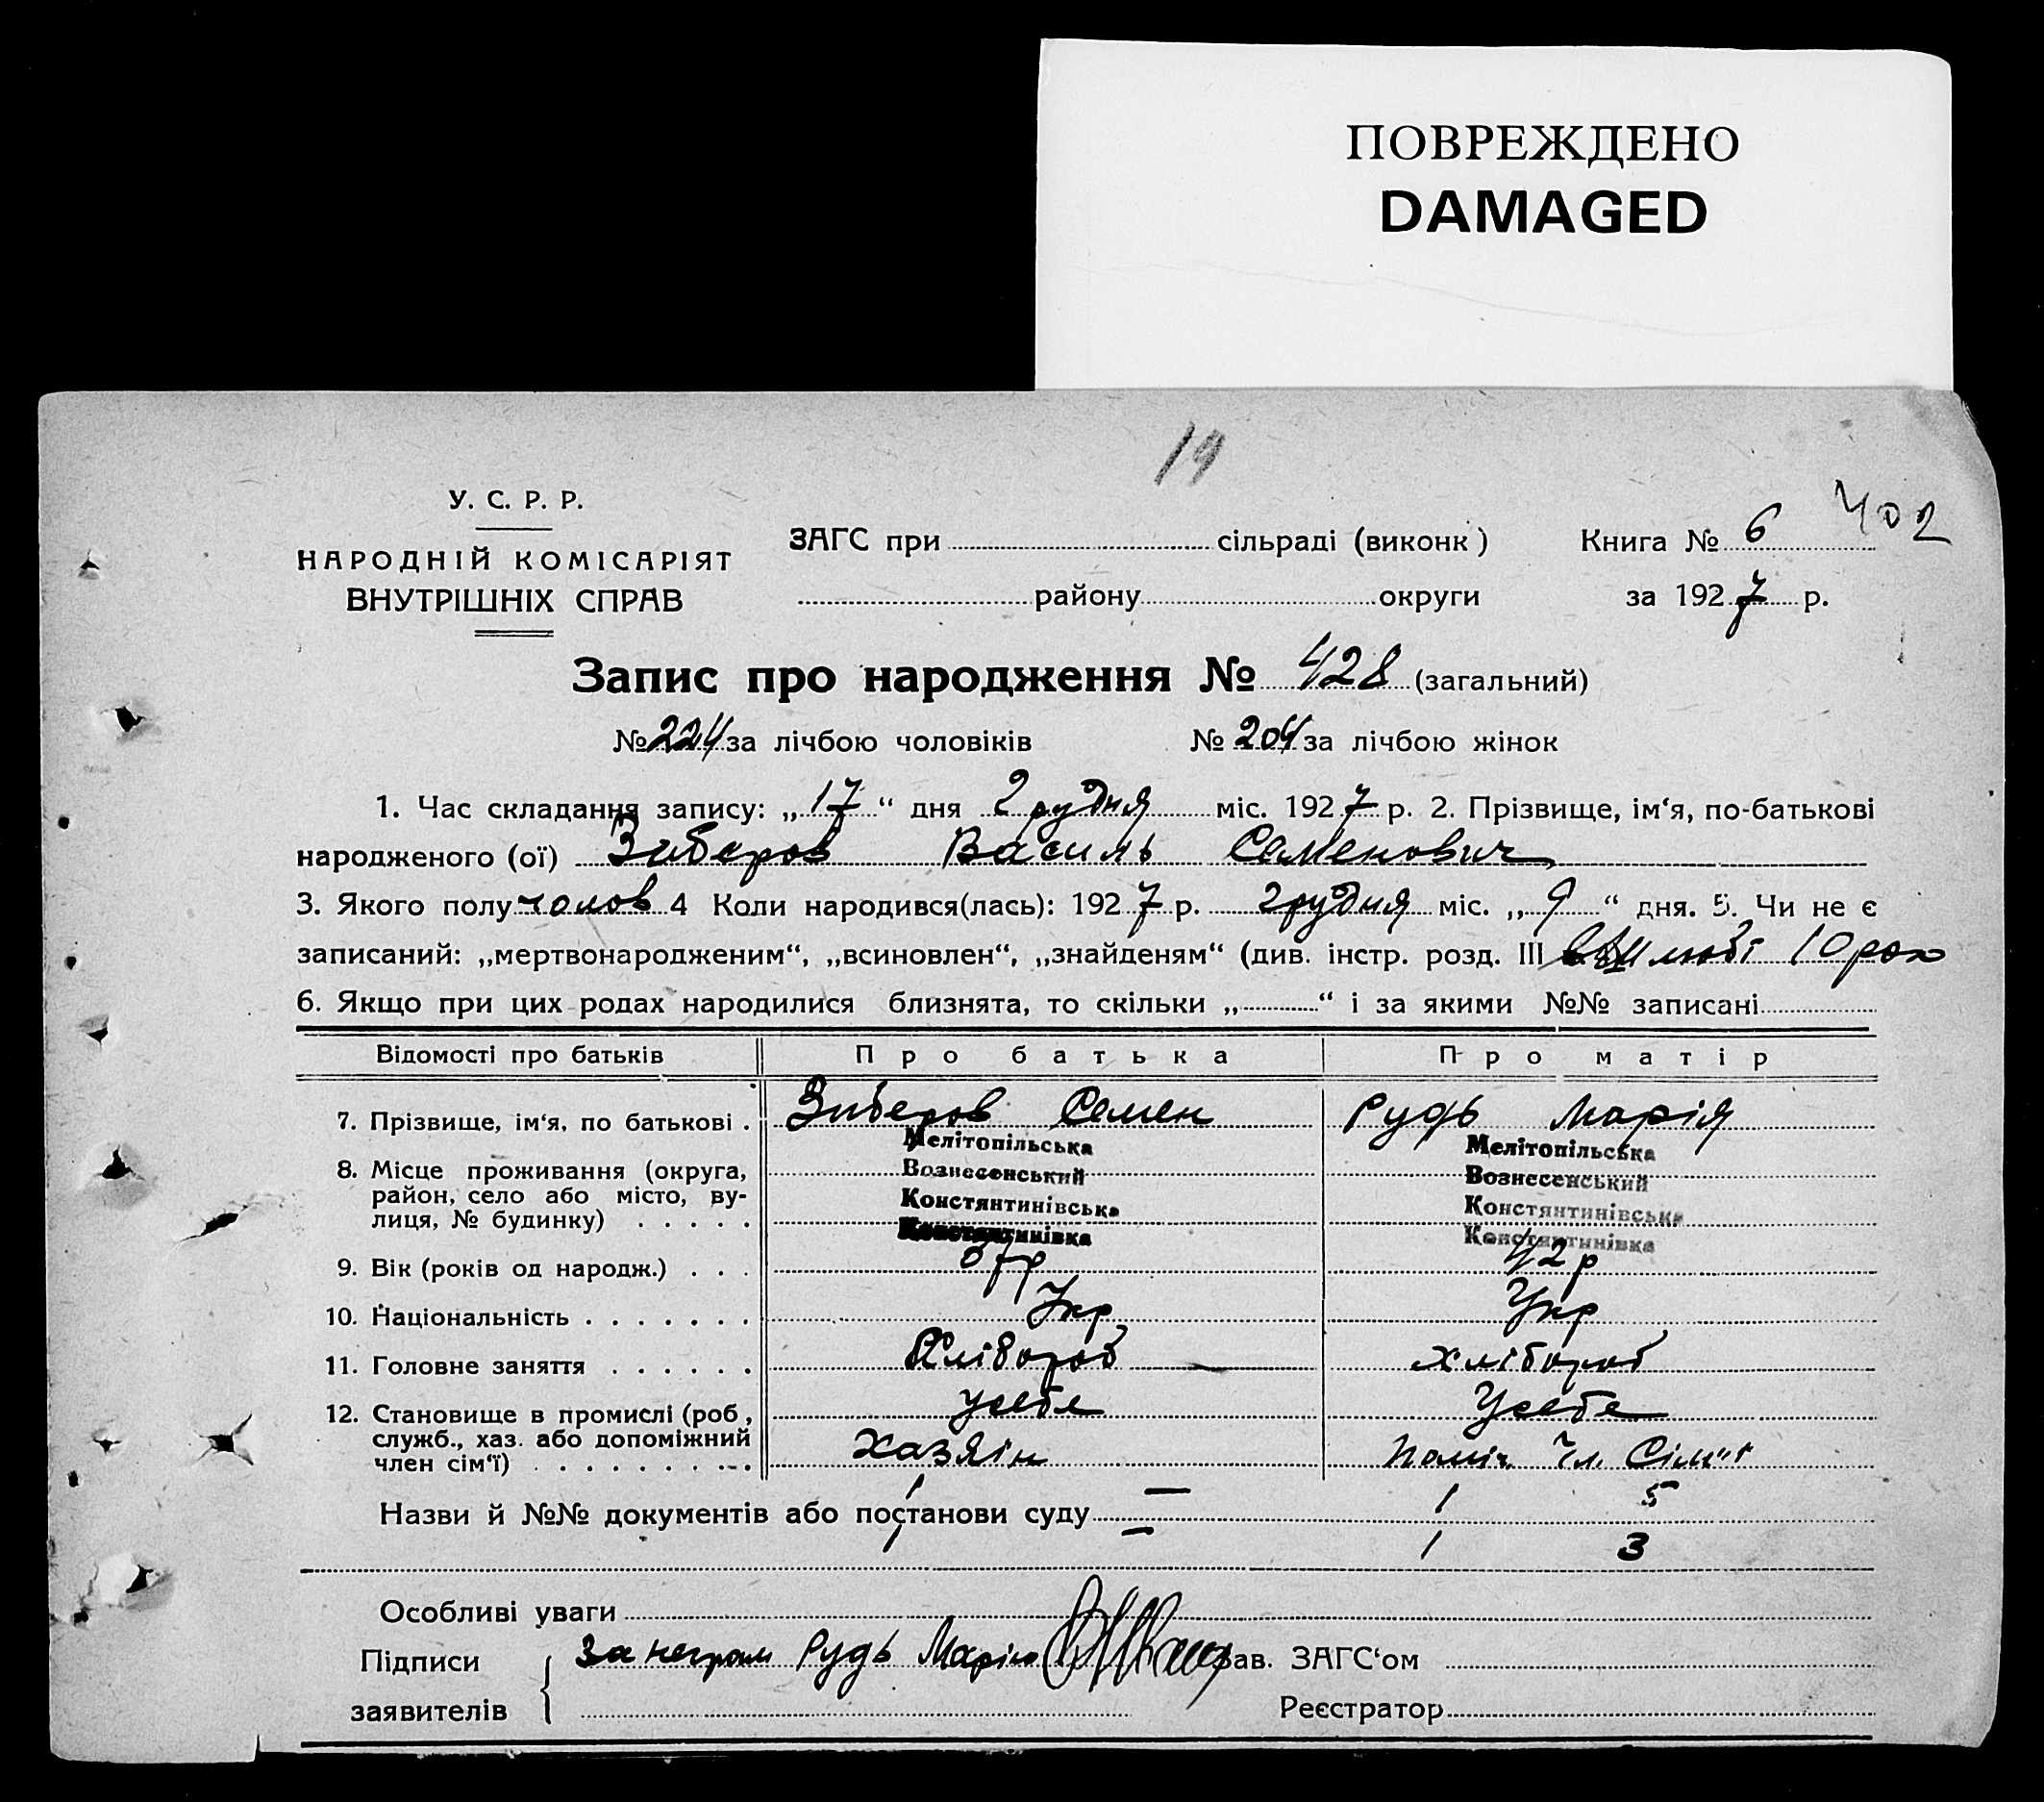 ПОВРЕЖДЕНО
DAMAGED
19
402
У. С. Р. Р.
НАРОДНІЙ КОМІСАРІЯТ
ВНУТРІШНІХ СПРАВ
ЗАГС при сільраді (виконк)
Книга № 6
району округи
за 1927 р.
Запис про народження № 428 (загальний)
№ 224 за лічбою чоловіків № 204 за лічбою жінок
1. Час складання запису: „17“ дня Грудня міс. 1927 р. 2. Прізвище, ім‘я, по-батькові
народженого (ої) Зиберов Василь Семенович
3. Якого полу чолов 4 Коли народився(лась): 1927 р. Грудня міс. „9“ дня. 5. Чи не є
записаний: „мертвонародженим“, „всиновлен“, „знайденям“ (див. інстр. розд. III 10
6. Якщо при цих родах народилися близнята, то скільки „ “ і за якими №№ записані
Відомості про батьків Про батька Про матір
7. Прізвище, ім‘я, по батькові . Зиберов Семен Рудь Марія
8. Місце проживання (округа, район, село або місто, ву-лиця, № будинку) . . . . .
Мелітопільська Мелітопільська
Вознесенський Вознесенський
Констянтинівська Констянтинівська
Констянтинівка Констянтинівка
9. Вік (років од народж.) . . . 42 р
10. Національність . . . . . . . Укр Укр
11. Головне заняття . . . . . . Хлібороб хлібороб
12. Становище в промислі (роб, служб., хаз. або допоміжний член сім‘ї) . . . . . . . . . .
усебе Усебе
Хазяін поміч чл. Сім"ї
1 — 1 5
Назви й №№ документів або постанови суду
1 — 1 3
Особливі уваги
Підписи За неграм Рудь Марію Зав. ЗАГС‘ом
заявителів Реєстратор